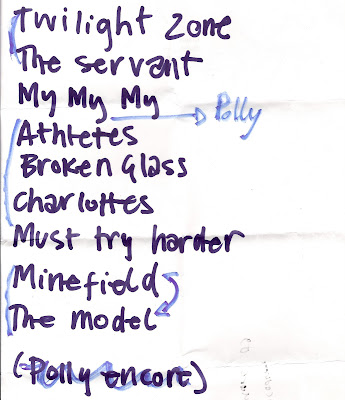 Twilight Zone
The servant
My My My Polly
Athletes
Broken Glass
Charlottes
Must try harder
Minefield
The model
(Polly encore)